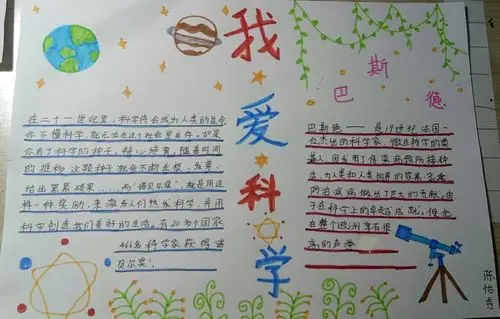 我爱科学
在二十一世纪里,科学将会成为人类的生命
你不懂科学,就无法在这个社会里生存。如果
你有了科学的种子,精心培育,随着时间
的推移,这颗种子就会不断生根、发芽
给出累累硕果……而"诺贝尔奖"就是用这
样一种奖励,来激发人们热爱科学,并用
科学创造我们美好的生活。有20多个国家
461名科学家获得诺
贝尔奖。
巴斯德
巴斯德——是19世纪法国一
位杰出的科学家,微生物学的奠
基人,因发明了传染病预防接种
法,为人类和人类饲养的家禽、家畜
防治疾病做出了巨大的贡献。由
于在科学上的卓越成就,使他
在整个欧洲享有很
高的声誉
陈怡